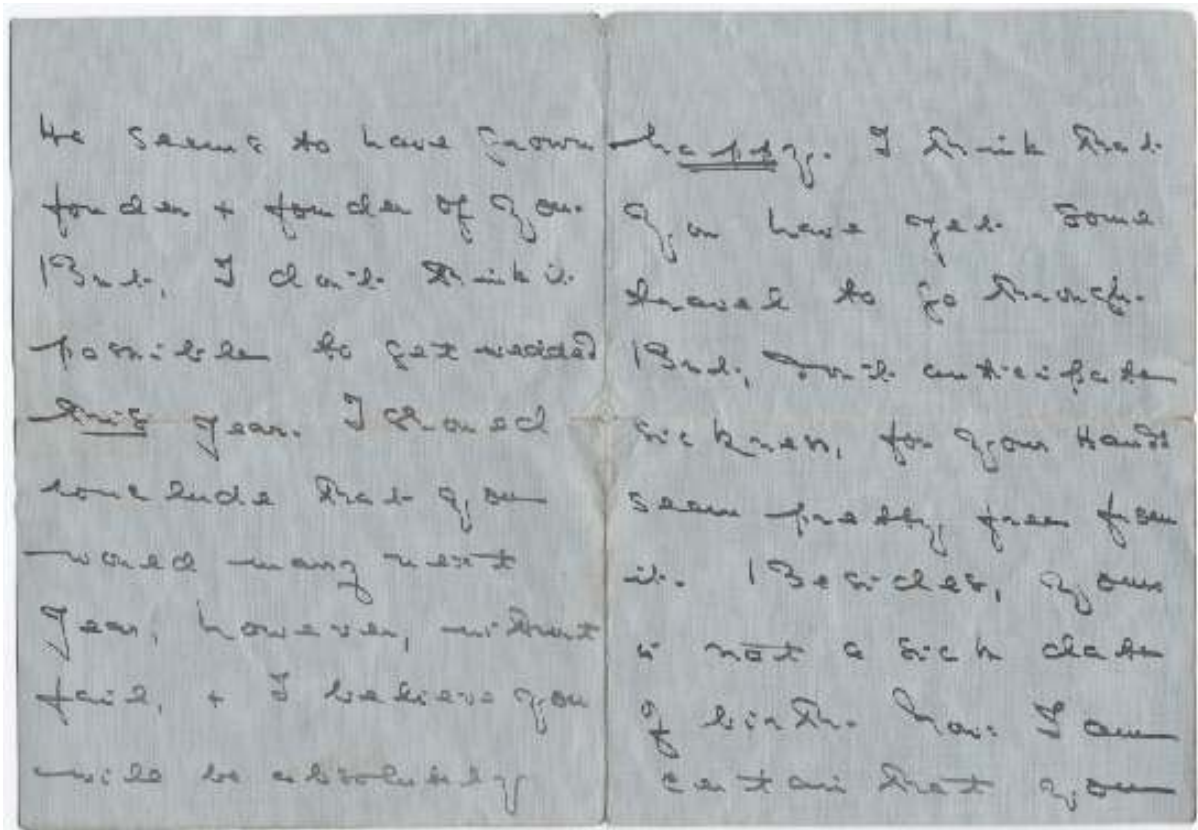 He seems to have grown
fonder + fonder of you.
But, I don't think it
possible to get wedded
this year. I should
conclude that you
would marry next
year, however, without
fail, + I believe you
will be absolutely
happy. I think that
you have yet some
travel to go through.
But, don't anticipate
sickness, for your Hands
seem pretty free from
it. Besides, yours
is not a sick date
of birth. Now I am
certain that your